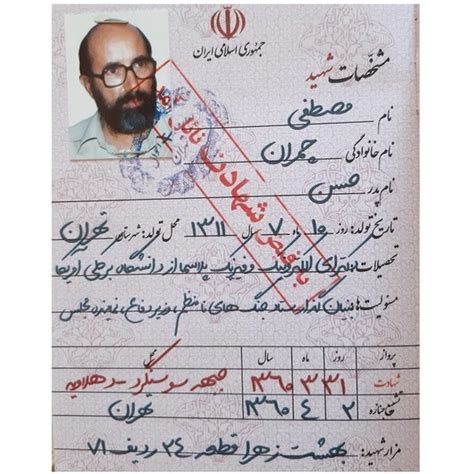 جمهوری اسلامی ایران
مشخصات شهید
نام مصطفی
نام خانوادگی چمران
نام پدر حسن
تاریخ تولد: روز ۱۰ ماه ۷ سال ۱۳۱۱ محل تولد: شهرستان تهران
تحصیلات: دکترای الکترونیک و فیزیک پلاسما از دانشگاه برکلی آمریکا
مسئولیت‌ها: بنیان گذار ستاد جنگ های نامنظم، وزیر دفاع، نماینده مجلس
با فیض شهادت
پرواز روز ماه سال محل
شهادت ۳۱ ۳ ۱۳۶۰ جبهه سوسنگرد - دهلاویه
تشییع جنازه ۲ ۴ ۱۳۶۰ تهران
مزار شهید: بهشت زهرا قطعه ۲۴ ردیف ۷۱